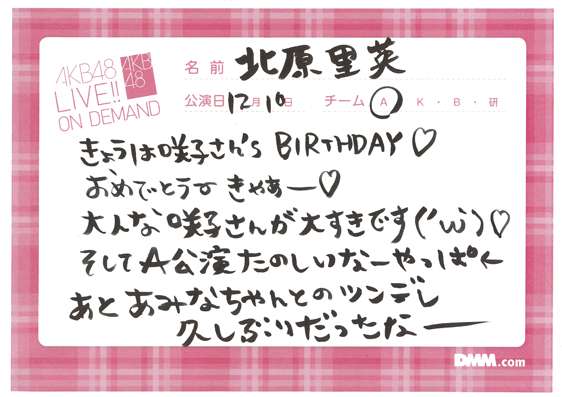 AKB48
LIVE!!
ON DEMAND
AKB
48
名前 北原里英
公演日 12月10日 チーム A K・B・研
きょうは咲子さん's BIRTHDAY♡
おめでとうー きゃあー♡
大人な咲子さんが大すきです('ω')♡
そしてA公演たのしいなーやっぱ
あと あみなちゃんとのツンデレ
久しぶりだったなー
DMM.com